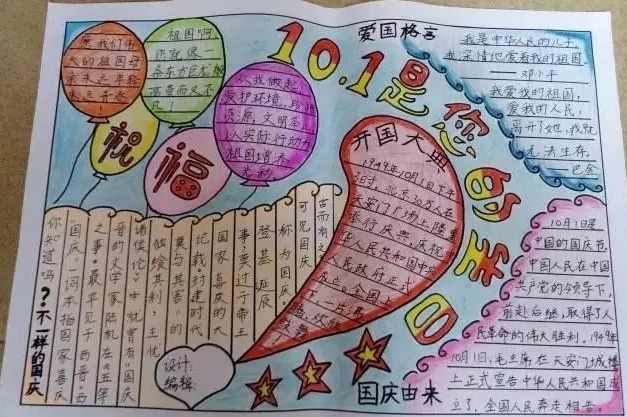 爱国格言
10.1是您的生日
愿我们伟
大的祖国母
亲永远年轻
永远青春
祖国啊,
你就像一
条东方巨龙
高贵而又不
凡!
从我做起,
爱护环境,珍惜
资源,文明茶
以实际行动为
祖国增添
光彩
祝
福
我是中华人民的儿子,
我深情地爱着我的祖国
——邓小平
我爱我的祖国,
爱我的人民,
离开了她,我就
无法生存,
——巴金
开国大典
1949年10月1日下午
3时,北京30万人在
天安门广场上隆重
举行庆典,庆祝中
华人民共和国中央
人民政府正式
成立。全国上
下一片
10月1日是
中国的国庆节,
中国人民在中国
共产党的领导下,
前赴后继,取得了人
民革命的伟大胜利。1949年
10月1日,毛主席在天安门城楼
上正式宣告中华人民共和国成
立了,全国人民奔走相告。
国庆由来
你知道吗?不一样的国庆
“国庆”一词本指国家喜庆
之事,最早见于西晋。西
晋的文学家陆机在《五等
诸侯论》中就曾有“国庆
独飨其利,主忧
莫与其害”的
记载。封建时代
国家喜庆的大
事,莫过于帝王
登基、诞辰
称为国庆,
可见国庆
古而有之
设计:
编辑: